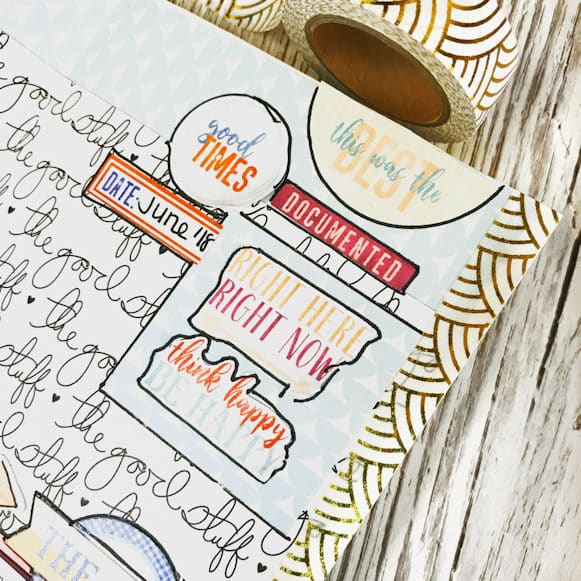 the good stuff
the good stuff
the good stuff
the good stuff
the good stuff
the good stuff
good
TIMES
this was the
BEST
DATE: June '18
DOCUMENTED
RIGHT HERE
RIGHT NOW
think happy
BE HAPPY
THE